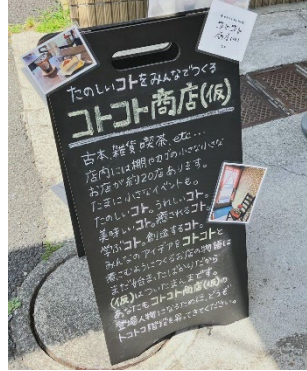 たのしいコトをみんなでつくる
コトコト商店(仮)
古本、雑貨、喫茶、etc...
店内には棚やカゴの小さな小さな
お店が約20店あります。
たまに小さなイベントも。
たのしいコト。うれしいコト。
美味しいコト。癒されるコト。
学ぶコト。創造するコト。
みんなのアイデアをコトコトと
煮こむようにつくるお店の物語は
まだ始まったばかりだから
(仮)はついたまんまです。
あなたもコトコト商店(仮)の
登場人物になるために、どうぞ
トコトコ階段を昇ってきてください。